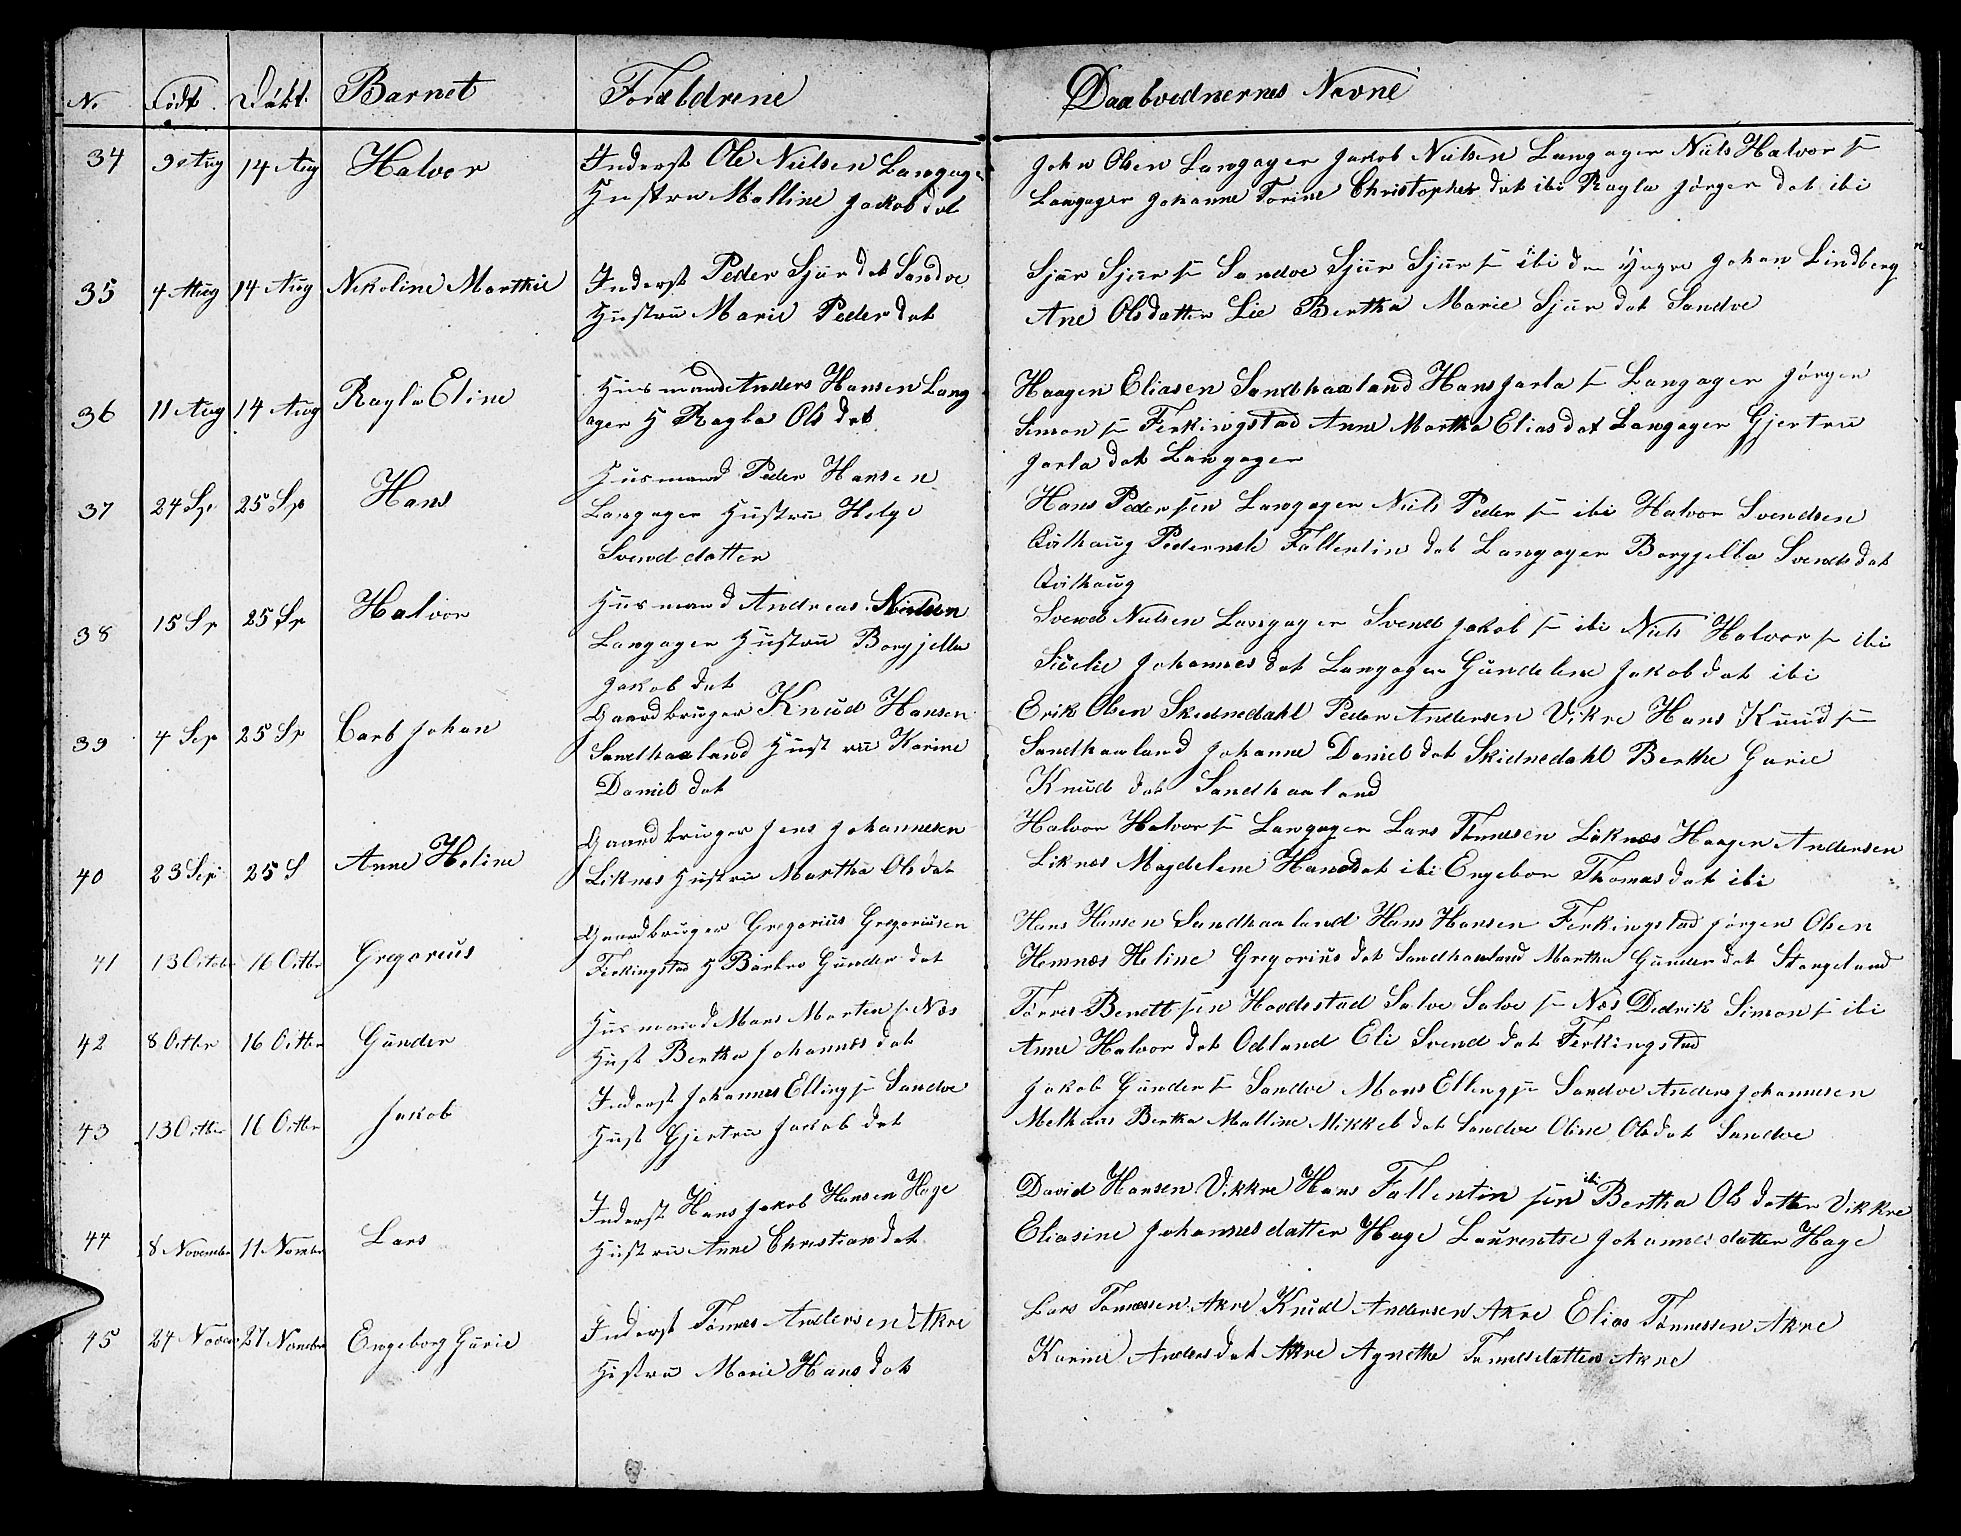 No Födt Döbt. Barnet Forældrene Daabvednernes Navne
34 9 Aug 14 Aug Halvor Inderst Ole Nielsen Langager
Hustru Malline Jakob dat
John Olsen Langager Jakob Nielsen Langager Niels Halvor s
Langager Johanne Torine Christopher dat ibi Ragla Jørgen dat ibi
35 4 Aug 14 Aug Nikoline Marthie Inderst Peder Sjur dat Sandve
Hustru Marie Peder dat
Sjur Sjur s Sandve Sjur Sjur s ibi den Yngre Johan Lindberg
Ane Olsdatter Lie Bertha Marie Sjur dat Sandve
36 11 Aug 14 Aug Ragla Eline Husmand Anders Hansen Lang
ager H Ragla Ols dat
Haagen Eliasen Sandhaaland Hans Jarla s Langager Jørgen
Simon s Ferkingstad Anne Martha Elias dat Langager Gjertru
Jarla dat Langager
37 24 Sp 25 Sp Hans Husmand Peder Hansen
Langager Hustru Helge
Svend datter
Hans Pedersen Langager Niels Peder s ibi Halvor Svendsen
Qvilhaug Pedernele Fallentin dat Langager Borgjella Svends dat
Qvilhaug
38 15 Sp 25 Sp Halvor Husmand Andreas Nielsen
Langager Hustru Borgjella
Jakob dat
Svend Nielsen Langager Svend Jakob s ibi Niels Halvor s ibi
Sicelie Johannes dat Langager Gundeline Jakob dat ibi
39 4 Sep 25 Sp Carl Johan Gaardbruger Knud Hansen
Sandhaaland Hustru Karine
Daniel dat
Erik Olsen Skednedahl Peder Andersen Vikre Hans Knud s
Sandhaaland Johanne Daniel dat Skidnedahl Berthe Gurie
Knud dat Sandhaaland
40 23 Sep 25 S Anne Heline Gaardbruger Jens Johannesen
Liknes Hustru Martha Ols dat
Halvor Halvor s Langager Lars Tomesen Liknes Haagen Andersen
Liknes Magdelene Hans dat ibi Engebor Thomas dat ibi
41 13 Octobr 16 Octbr Gregorius Gaardbruger Gregorius Gregoriusen
Ferkingstad H Barbro Gunder dat
Hans Hansen Sandhaaland Hans Hansen Ferkingstad Jørgen Olsen
Hemnes Heline Gregorius dat Sandhaaland Martha Gunder dat Stangeland
42 8 Octbr 16 Octbr Gunder Husmand Mans Morten s Næs
Hust Bertha Johannes dat
Torres Benettsen Havdestad Salve Salve s Næs Dedrik Simon s ibi
Anne Halvor dat Odland Eli Svend dat Ferkingstad
43 13 Octbr 16 Octbr Jakob Inderst Johannes Elling s Sandve
Hust Gjertru Jakob dat
Jakob Gunder s Sandve Mons Elling s Sandve Anders Johannesen
Melhuus Bertha Malline Mikkel dat Sandve Oline Ols dat Sandve
44 8 November 11 Nombr Lars Inderst Hans Jakob Hansen Hage
Hustru Anne Christian dat
David Hansen Vikkre Hans Fallentin sen ibi Bertha Ols datter Vikkre
Eliasine Johannes datter Hage Laurentse Johannes datter Hage
45 24 Novem 27 Novembr Engeborg Gurie Inderst Tomes Andersen Akre
Hustru Marie Hans dat
Lars Tomessen Akre Knud Andersen Akre Elias Tomessen Akre
Karine Anders dat Akre Agnethe Tomesdatter Akre